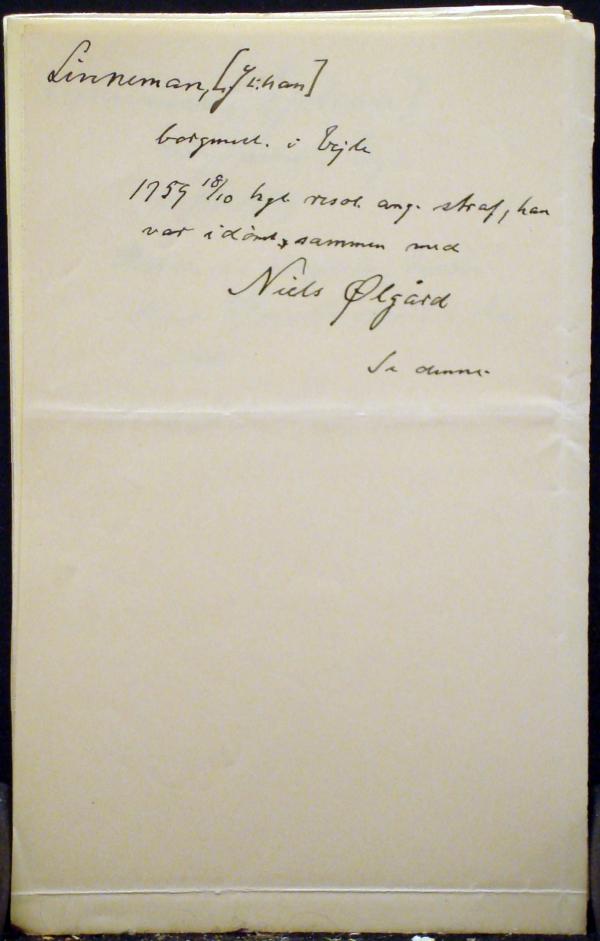 Linneman, [Johan]
borgmest. i Vejle
1759 18/10 kgl. resol. ang. straf, han
var idømt, sammen med
Niels Ølgård
Se denne.